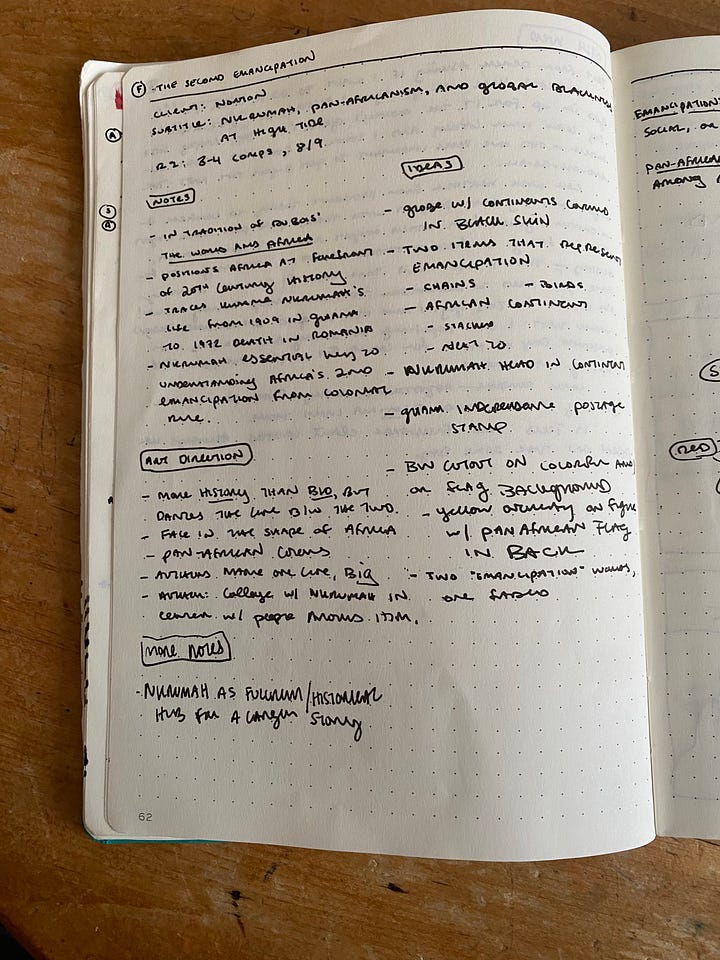 F
THE SECOND EMANCIPATION
CLIENT: NORTON
SUBTITLE: NKRUMAH, PAN-AFRICANISM, AND GLOBAL BLACKNESS
AT HIGH TIDE
R2: 3-4 COMPS, 8/9
NOTES
- IN TRADITION OF DUBOIS'
THE WORLD AND AFRICA
- POSITIONS AFRICA AT FOREFRONT
OF 20TH CENTURY HISTORY
- TRACES KWAME NKRUMAH'S
LIFE FROM 1909 IN GHANA
TO 1972 DEATH IN ROMANIA
- NKRUMAH ESSENTIAL KEY TO
UNDERSTANDING AFRICA'S 2ND
EMANCIPATION FROM COLONIAL
RULE.
ART DIRECTION
- MORE HISTORY THAN BIO, BUT
DANCES THE LINE B/W THE TWO
- FACE IN THE SHAPE OF AFRICA
- PAN-AFRICAN COLORS
- AUTHORS NAME ONE LINE, BIG
- AUTHOR: COLLAGE W/ NKRUMAH IN
CENTER W/ PEOPLE AROUND HIM.
MORE NOTES
- NKRUMAH AS FULCRUM/HISTORICAL
HUB FOR A LARGER STORY
IDEAS
- GLOBE W/ CONTINENTS COVERED
IN BLACK SKIN
- TWO ITEMS THAT REPRESENT
EMANCIPATION
- CHAINS - BIRDS
- AFRICAN CONTINENT
- STACKED
- NEXT TO
- NKRUMAH HEAD IN CONTINENT
- GHANA INDEPENDENCE POSTAGE
STAMP
- BW CUTOUT ON COLORFUL AND
OR FLAG BACKGROUND
- YELLOW OVERLAY ON FIGURE
W/ PAN AFRICAN FLAG
IN BACK
- TWO "EMANCIPATION" WORDS,
ONE FADED
62
A
S
A
EMANCIPATION
SOCIAL, OR
PAN-AFRICA
AMONG
S
RED